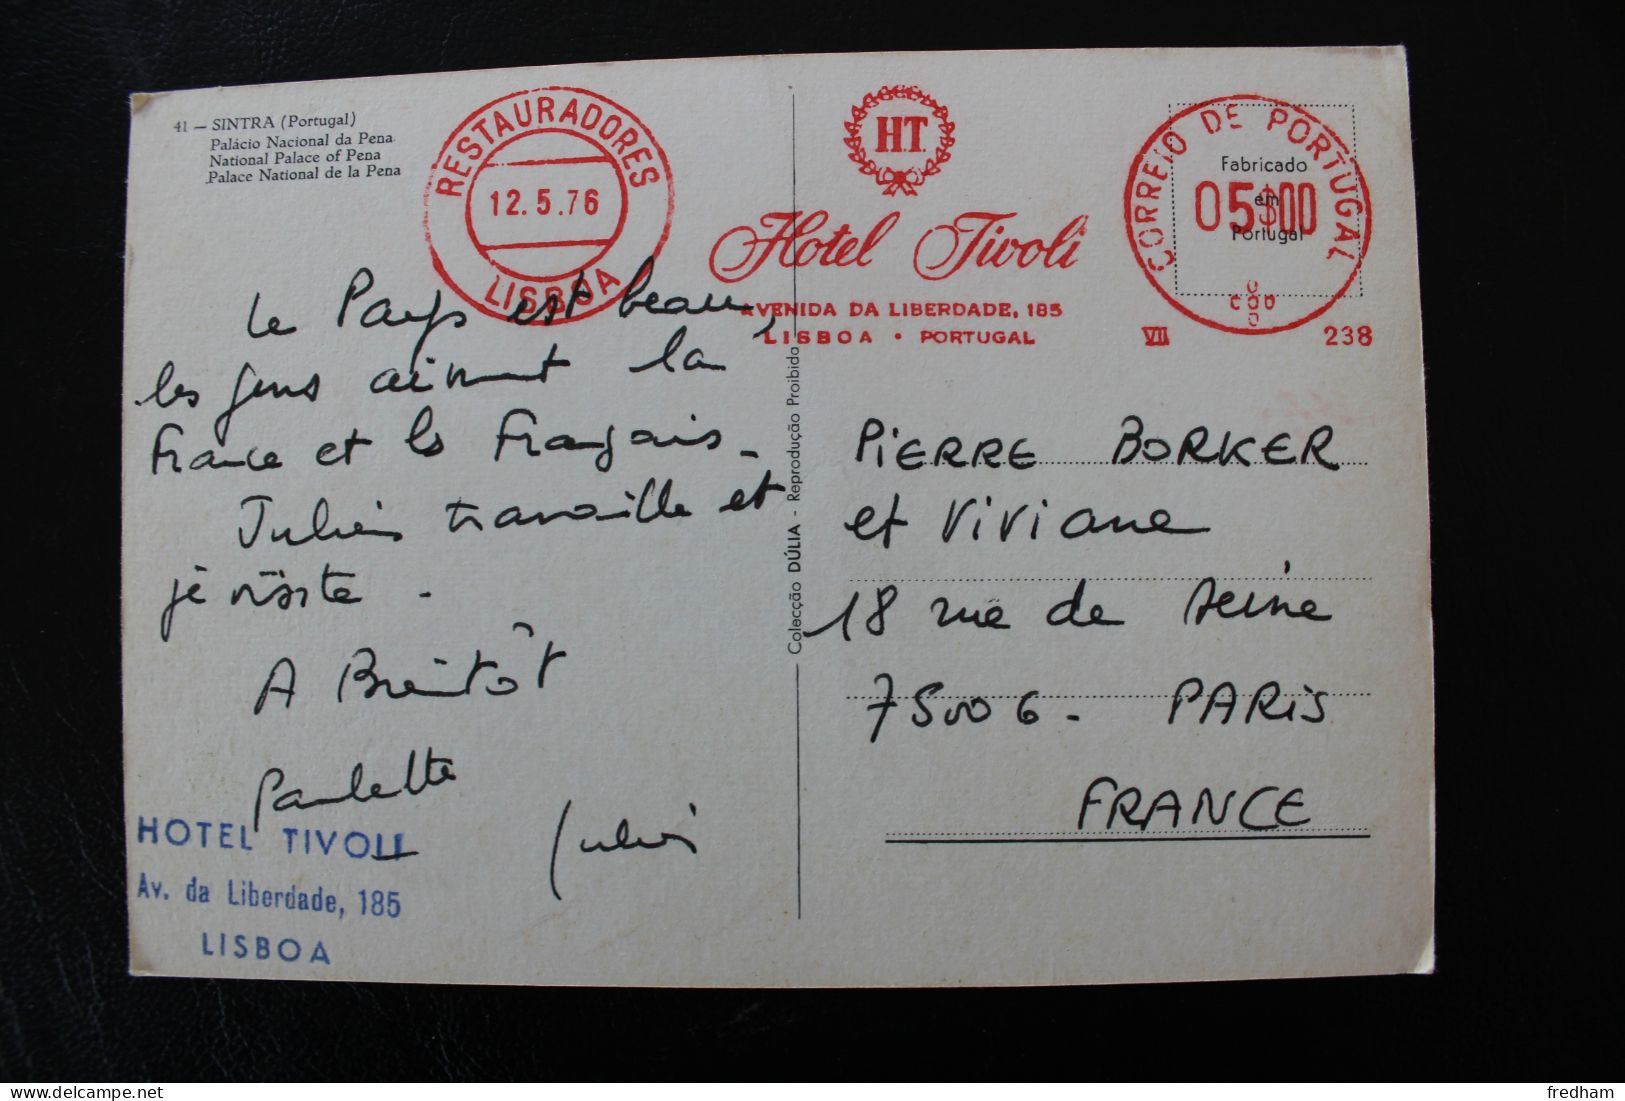 41 — SINTRA (Portugal)
Palácio Nacional da Pena
National Palace of Pena
Palace National de la Pena
RESTAURADORES
12.5.76
LISBOA
HT.
Hotel Tivoli
AVENIDA DA LIBERDADE, 185
LISBOA • PORTUGAL
CORREIO DE PORTUGAL
05$00
Fabricado
em
Portugal
VII
238
le Pays est beau,
les gens aiment la
France et les Français.
Julien travaille et
je visite.
A Bientôt
Paulette
Julien
HOTEL TIVOLI
Av. da Liberdade, 185
LISBOA
Colecção DÚLIA - Reprodução Proibida
PIERRE BORKER
et Viviane
18 rue de Seine
75006 - PARIS
FRANCE
Delcampe.net
fredham